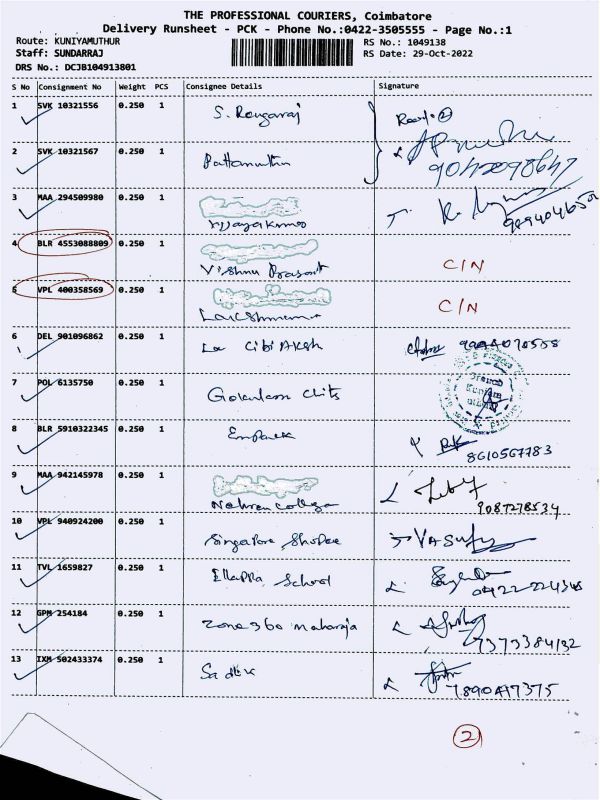 THE PROFESSIONAL COURIERS, Coimbatore
Delivery Runsheet - PCK - Phone No.:0422-3505555 - Page No.:1
Route: KUNIYAMUTHUR
RS No.: 1049138
Staff: SUNDARRAJ
RS Date: 29-Oct-2022
DRS No.: DCJB104913801
S No Consignment No Weight PCS Consignee Details Signature
1 SVK 10321556 0.250 1 S. Rengaraj
2 SVK 10321567 0.250 1 Pattamuthu
3 MAA 294509980 0.250 1 Vijayakumar
4 BLR 4553088809 0.250 1 Vishnu Prasant C/N
5 VPL 400358569 0.250 1 C/N
6 DEL 901096862 0.250 1 La Cibi Aksh
7 POL 6135750 0.250 1 Gokulam Chits
8 BLR 5910322345 0.250 1 8610567783
9 MAA 942145978 0.250 1 Nehru College 9087278534
10 VPL 940924200 0.250 1 Singapore Shopee
11 TVL 1659827 0.250 1 Ellappa School
12 GPM 254184 0.250 1 Zone 360 Maharaja
13 IXM 502433374 0.250 1 Sadik 7890417375
2